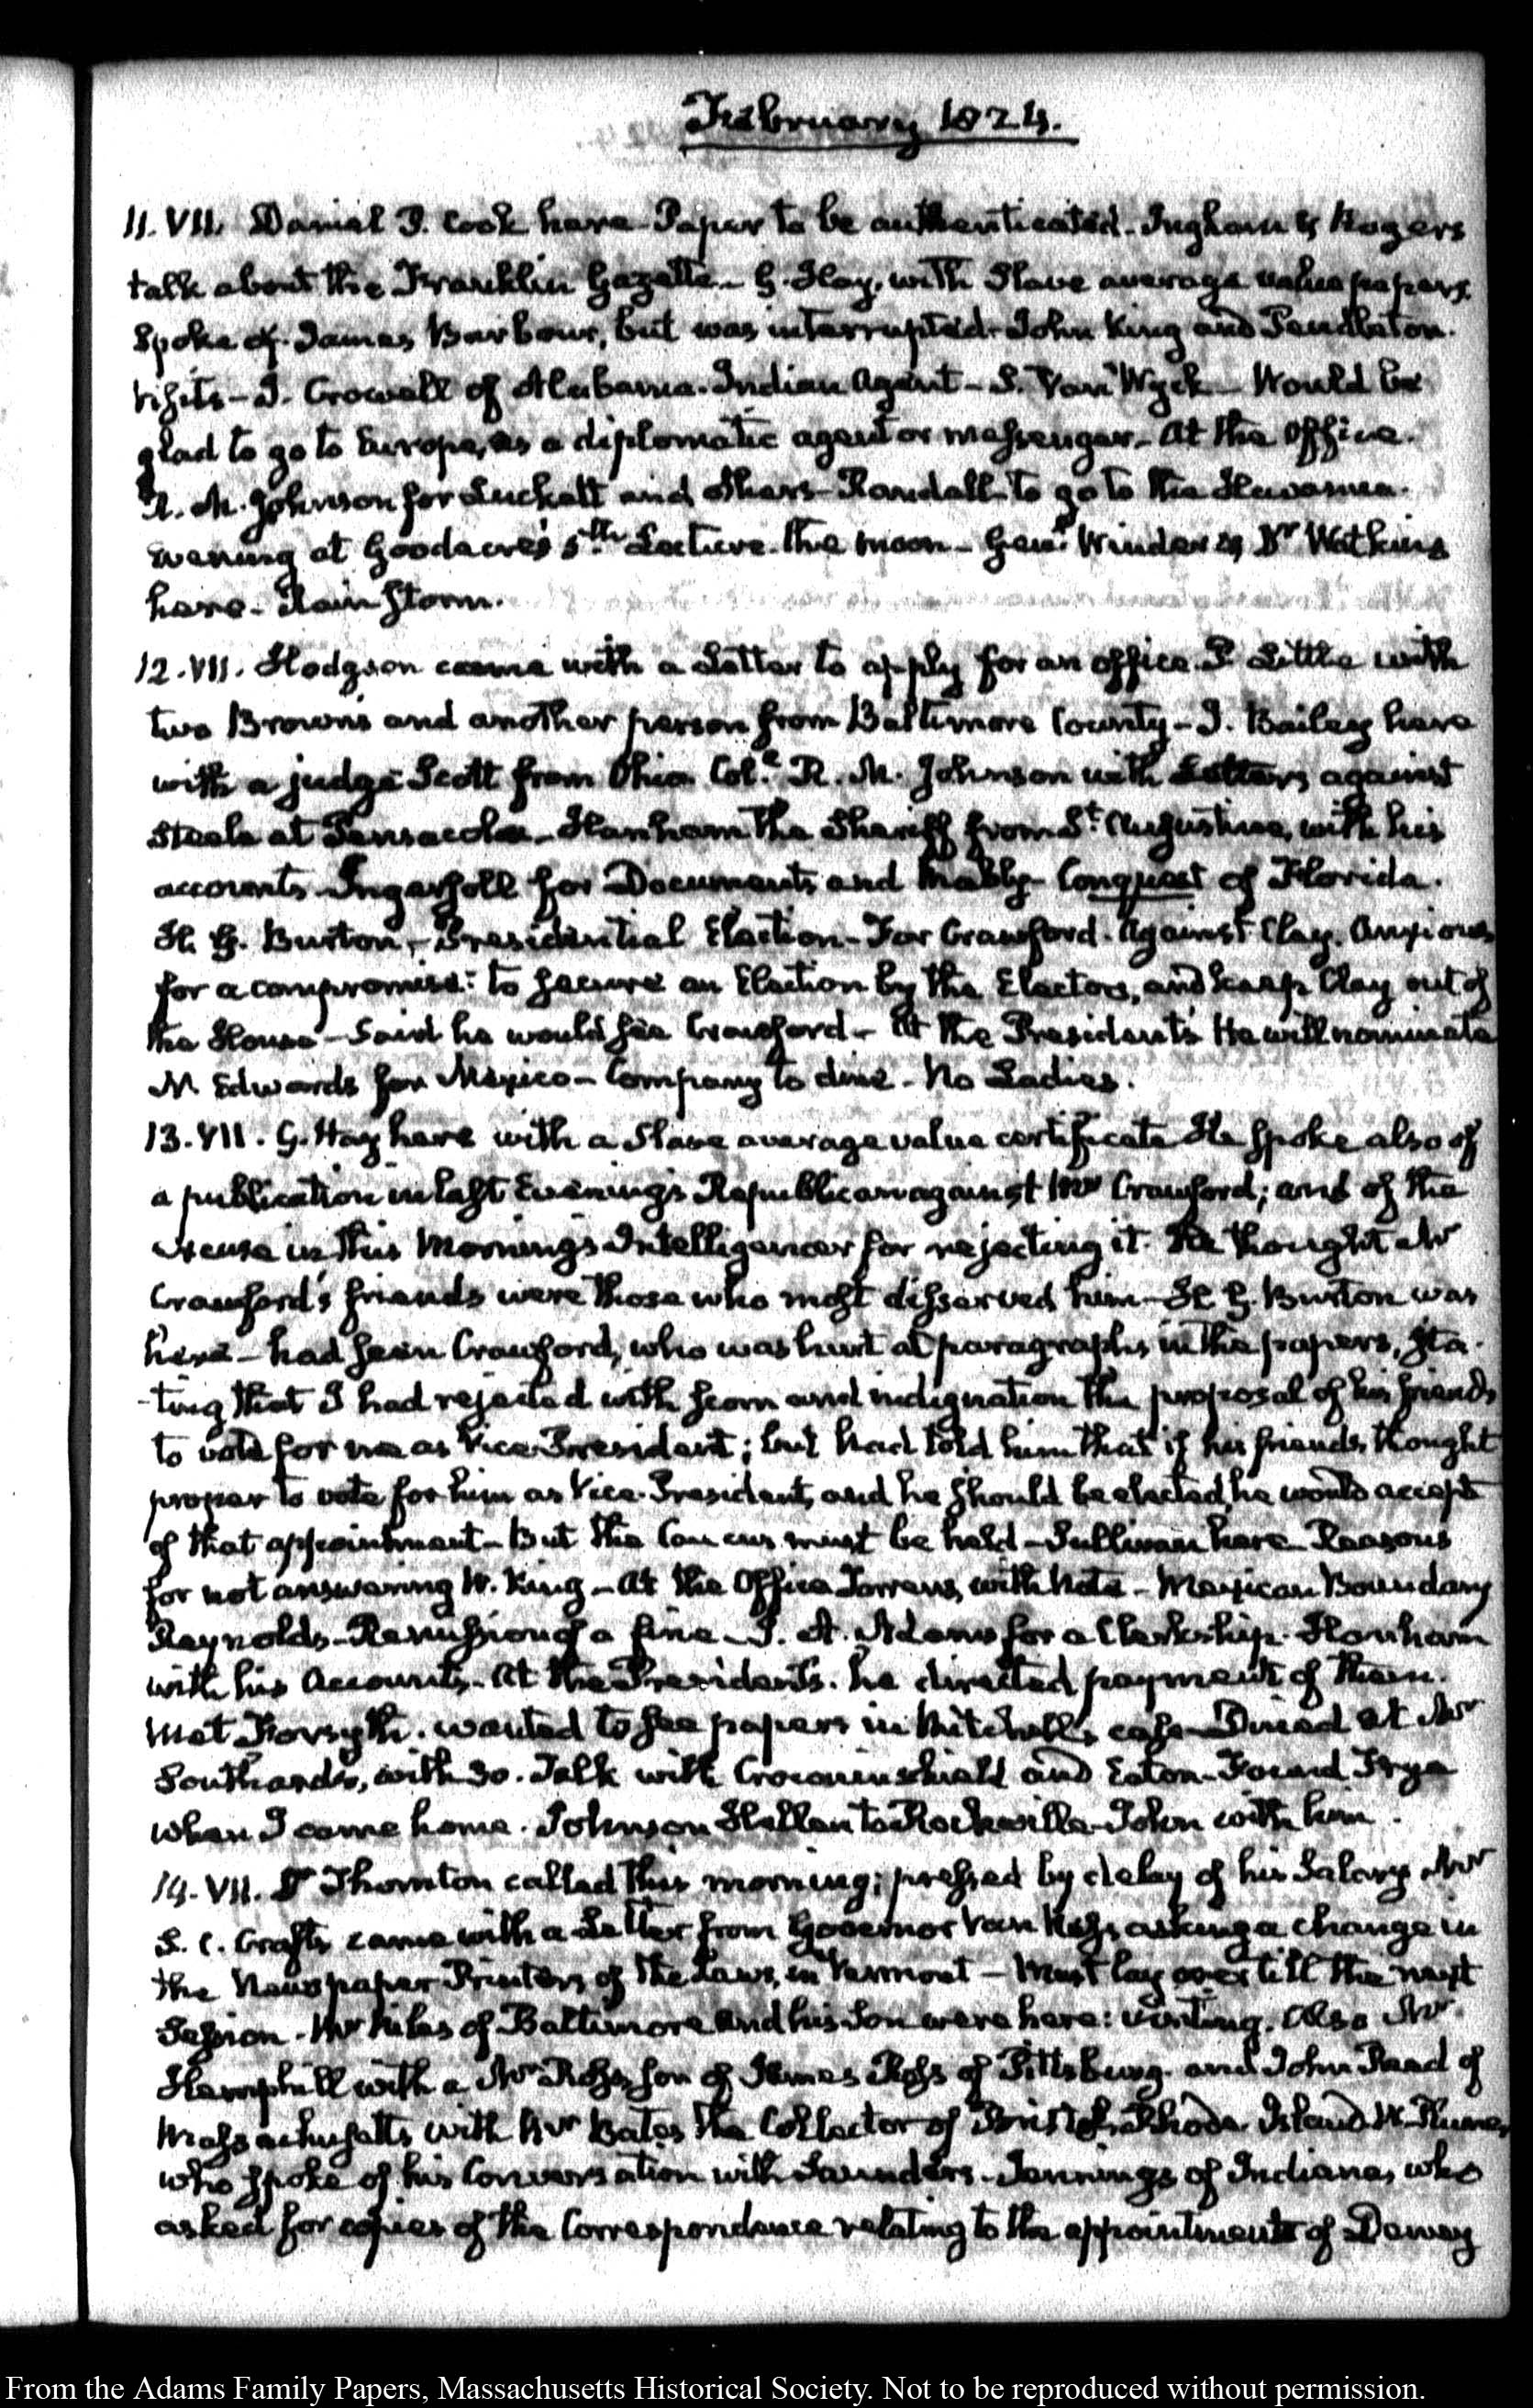 February 1824.
11. VII. Daniel P. Cook here - Paper to be authenticated - Ingham & Rogers
talk about the Franklin Gazette - G. Hay, with Slave average value papers.
Spoke of James Barbour, but was interrupted. John King and Pendleton.
Visits - J. Crowell of Alabama. Indian Agent - S. Van Wyck - Would be
glad to go to Europe, as a diplomatic agent or messenger - At the Office.
R. M. Johnson for Luckett and others - Randall to go to the Havanna.
Evening at Goodacre's 5th Lecture. the moon - Genl Winder & Dr Watkins
here - Rain Storm.
12. VII. Hodgson came with a Letter to apply for an office P. Little with
two Browns and another person from Baltimore County - J. Bailey here
with a judge Scott from Ohio Col. R. M. Johnson with Letters against
Steele at Pensacola - Hanham the Sheriff from St Augustine, with his
accounts - Ingersoll for Documents and Mably - Conquest of Florida.
H. G. Burton, - Presidential Election - For Crawford. Against Clay. Anxious
for a compromise: to secure an Election by the Electors, and keep Clay out of
the House - Said he would see Crawford - At the Presidents He will nominate
N. Edwards for Mexico - Company to dine - No Ladies.
13. VII. G. Hay here with a Slave average value certificate He spoke also of
a publication in last Evening's Republican against Mr Crawford; and of the
excuse in this Morning's Intelligencer for rejecting it. He thought Mr
Crawford's friends were those who most disserved him - H. G. Burton was
here - had seen Crawford, who was hurt at paragraphs in the papers, sta-
-ting that I had rejected with scorn and indignation the proposal of his friends
to vote for me as Vice President; but had told him that if his friends thought
proper to vote for him as Vice-President, and he should be elected, he would accept
of that appointment - But the Caucus must be held - Sullivan here - Reasons
for not answering W. King - At the Office Torrens, with Note - Mexican Boundary
Reynolds - Remission of a fine - J. A. Adams for a Clerkship - Hanham
with his Accounts - At the Presidents. he directed payment of them.
Met Forsyth. wanted to see papers in Mitchell's case - Dined at Mr
Southard's, with 30. Talk with Crowninshield and Eaton - Found Frye
when I came home. Johnson Hellen to Rockville - John with him.
14. VII. Dr Thornton called this morning; pressed by delay of his Salary Mr
S. C. Crafts came with a Letter from Governor Van Ness asking a change in
the Newspaper Printers of the Laws, in Vermont - Must lay over till the next
Session. Mr Niles of Baltimore and his Son were here: visiting. Also Mr
Hemphill with a Mr Ross, son of James Ross of Pittsburg. and John Reed of
Massachusetts with Mr Bates the Collector of Bristol, Rhode Island W. Plumer,
who spoke of his Conversation with Saunders - Jennings of Indiana, who
asked for copies of the Correspondence relating to the appointment of Dewey
From the Adams Family Papers, Massachusetts Historical Society. Not to be reproduced without permission.